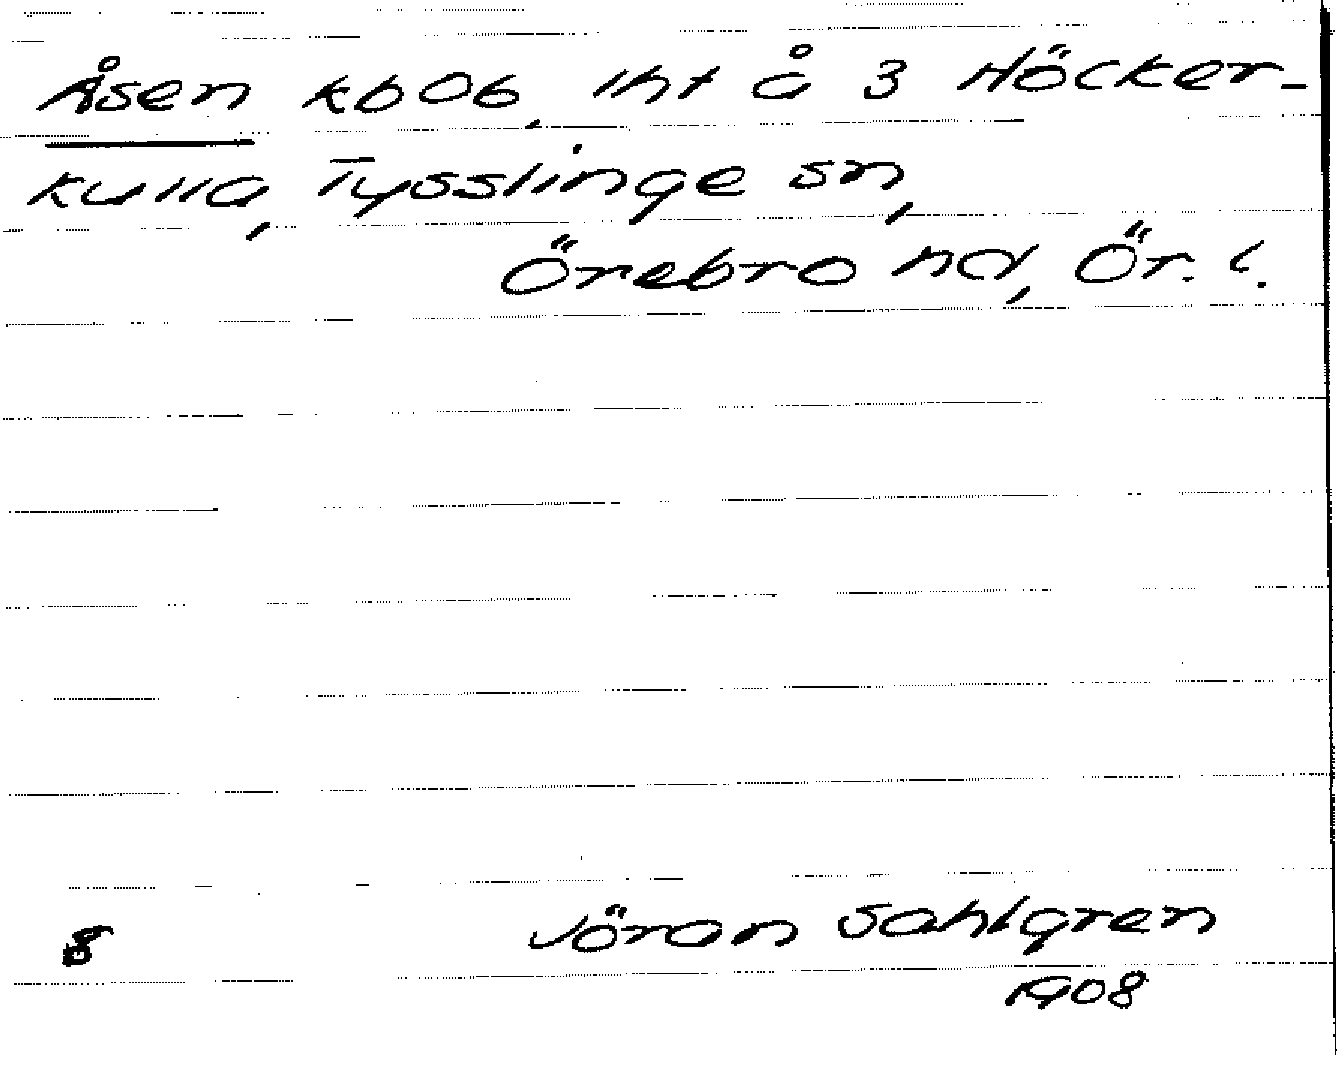 Åsen kb06, lht å 3 Höcker-
kulla, Tysslinge sn,
Örebro hd, Ör. l.
8 Jöran Sahlgren
1908